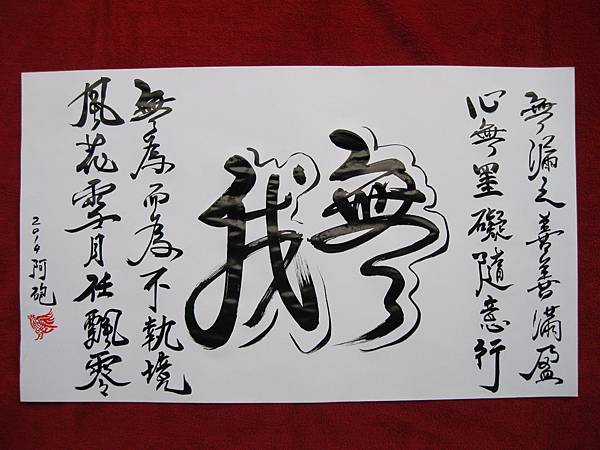 無漏之善善滿盈
心無罣礙隨意行
無我
無為而為不執境
風花雪月任飄零
2014阿砲